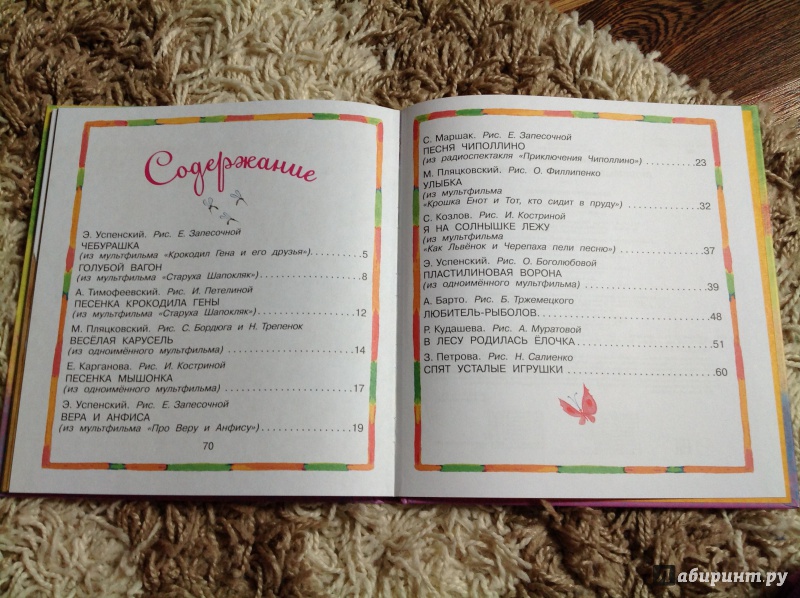 Содержание
Э. Успенский. Рис. Е. Запесочной
ЧЕБУРАШКА
(из мультфильма «Крокодил Гена и его друзья»)..........5
ГОЛУБОЙ ВАГОН
(из мультфильма «Старуха Шапокляк»)....................8
А. Тимофеевский. Рис. И. Петелиной
ПЕСЕНКА КРОКОДИЛА ГЕНЫ
(из мультфильма «Старуха Шапокляк»)..................12
М. Пляцковский. Рис. С. Бордюга и Н. Трепенок
ВЕСЁЛАЯ КАРУСЕЛЬ
(из одноимённого мультфильма)......................14
Е. Карганова. Рис. И. Костриной
ПЕСЕНКА МЫШОНКА
(из одноимённого мультфильма)......................17
Э. Успенский. Рис. Е. Запесочной
ВЕРА И АНФИСА
(из мультфильма «Про Веру и Анфису»).................19
70
С. Маршак. Рис. Е. Запесочной
ПЕСНЯ ЧИПОЛЛИНО
(из радиоспектакля «Приключения Чиполлино»)..........23
М. Пляцковский. Рис. О. Филлипенко
УЛЫБКА
(из мультфильма
«Крошка Енот и Тот, кто сидит в пруду»)................32
С. Козлов. Рис. И. Костриной
Я НА СОЛНЫШКЕ ЛЕЖУ
(из мультфильма
«Как Львёнок и Черепаха пели песню»)..................37
Э. Успенский. Рис. О. Боголюбовой
ПЛАСТИЛИНОВАЯ ВОРОНА
(из одноимённого мультфильма).......................39
А. Барто. Рис. Б. Тржемецкого
ЛЮБИТЕЛЬ-РЫБОЛОВ.............................48
Р. Кудашева. Рис. А. Муратовой
В ЛЕСУ РОДИЛАСЬ ЁЛОЧКА........................51
З. Петрова. Рис. Н. Салиенко
СПЯТ УСТАЛЫЕ ИГРУШКИ.........................60
Лабиринт.ру